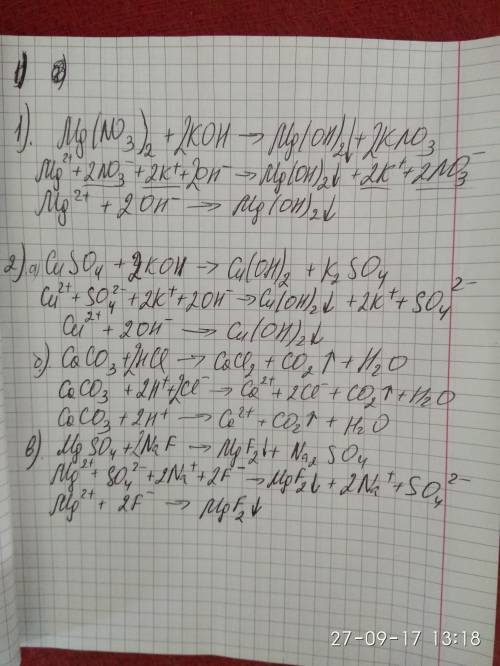 1)
1). Mg(NO₃)₂ + 2KOH → Mg(OH)₂↓ + 2KNO₃
Mg²⁺ + 2NO₃⁻ + 2K⁺ + 2OH⁻ → Mg(OH)₂↓ + 2K⁺ + 2NO₃⁻
Mg²⁺ + 2OH⁻ → Mg(OH)₂↓
2). а) CuSO₄ + 2KOH → Cu(OH)₂ + K₂SO₄
Cu²⁺ + SO₄²⁻ + 2K⁺ + 2OH⁻ → Cu(OH)₂↓ + 2K⁺ + SO₄²⁻
Cu²⁺ + 2OH⁻ → Cu(OH)₂↓
б). CaCO₃ + 2HCl → CaCl₂ + CO₂↑ + H₂O
CaCO₃ + 2H⁺ + 2Cl⁻ → Ca²⁺ + 2Cl⁻ + CO₂↑ + H₂O
CaCO₃ + 2H⁺ → Ca²⁺ + CO₂↑ + H₂O
в). MgSO₄ + 2NaF → MgF₂↓ + Na₂SO₄
Mg²⁺ + SO₄²⁻ + 2Na⁺ + 2F⁻ → MgF₂↓ + 2Na⁺ + SO₄²⁻
Mg²⁺ + 2F⁻ → MgF₂↓
27-09-17 13:18